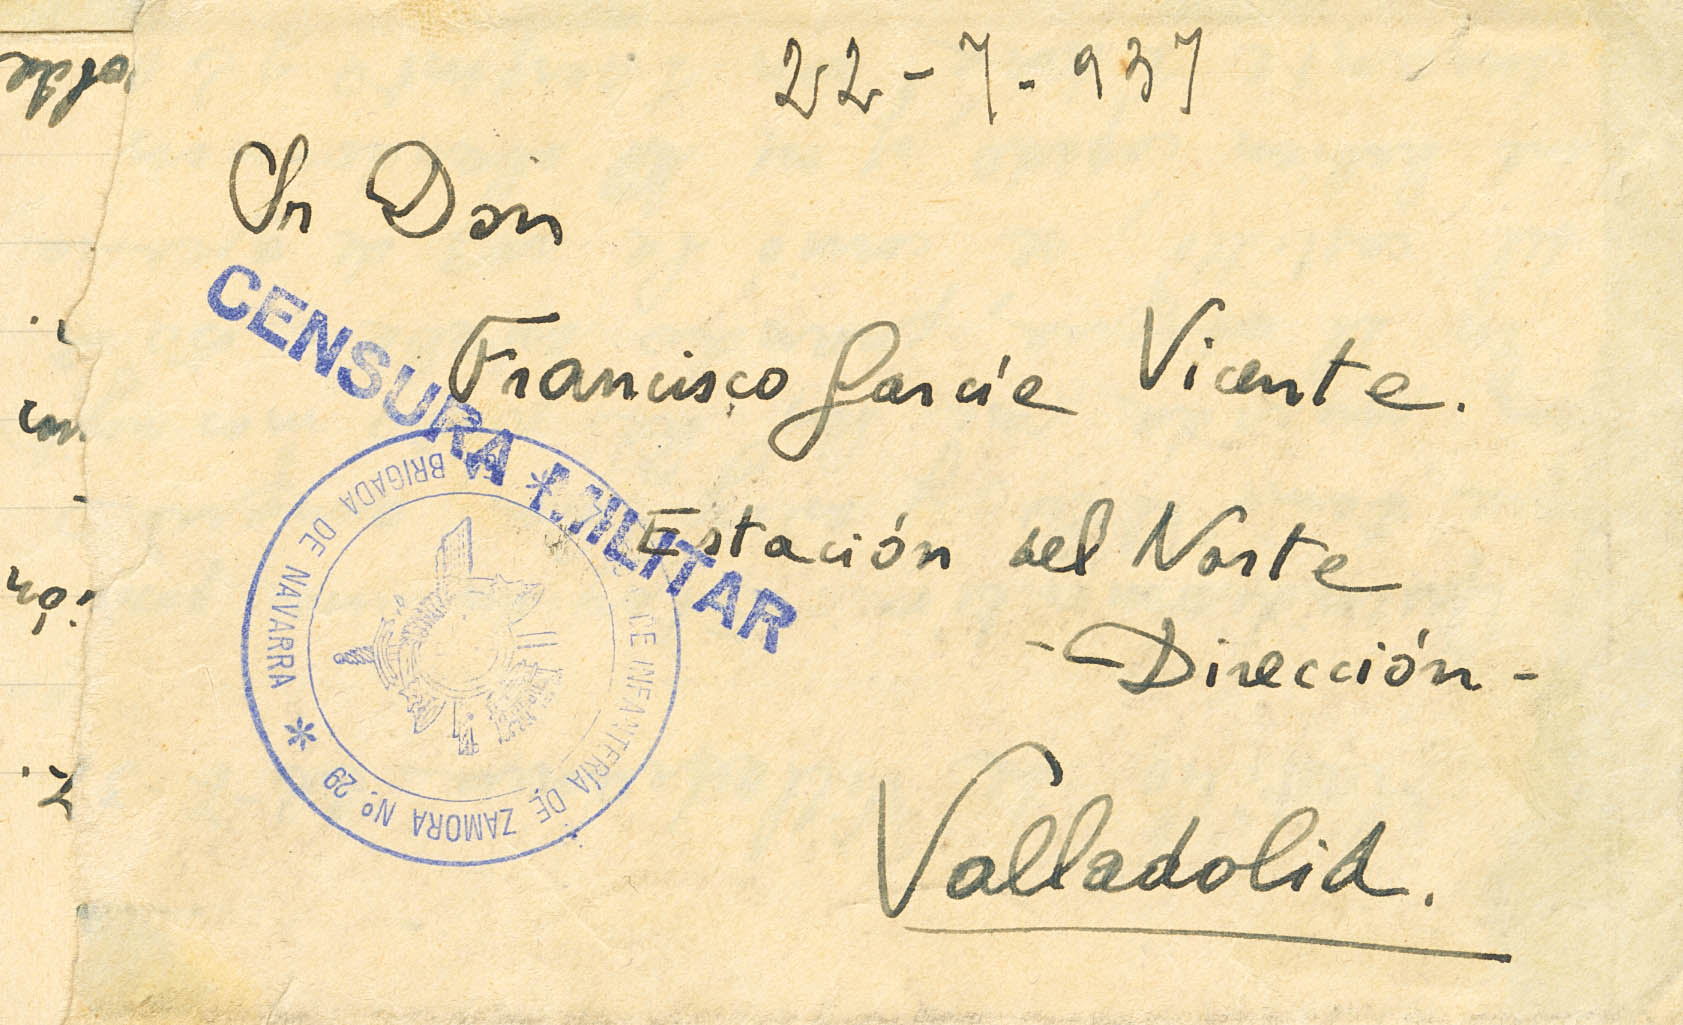 22-7-937
Sr Don
Francisco García Vicente.
Estación del Norte
- Dirección -
Valladolid.
CENSURA MILITAR
BRIGADA DE NAVARRA *
DE INFANTERÍA DE ZAMORA Nº 29